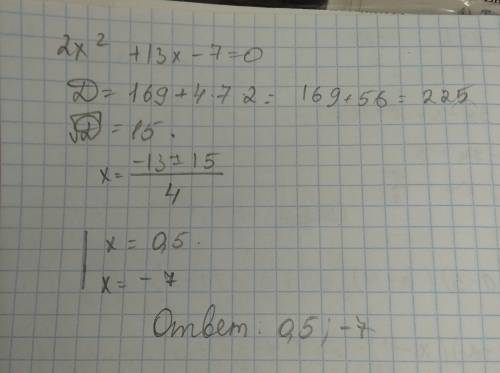 2x² + 13x - 7 = 0
D = 169 + 4·7·2 = 169 + 56 = 225
√D = 15.
x = (-13 ± 15) / 4
x = 0,5.
x = - 7
Ответ: 0,5; -7